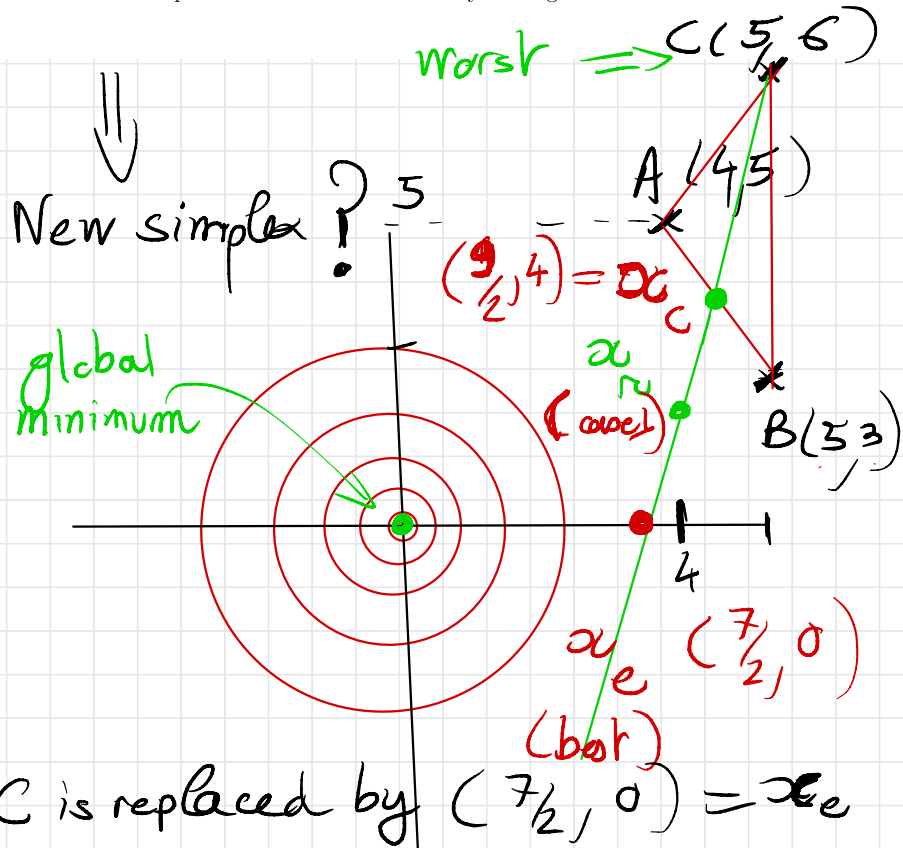 C(5,6)
worst ⇒
A(4,5)
New simplex ?
5
(9/2,4) = x_c
global
minimum
x_r
(case1)
B(5,3)
4
x_e
(7/2,0)
(best)
C is replaced by (7/2,0) = x_e